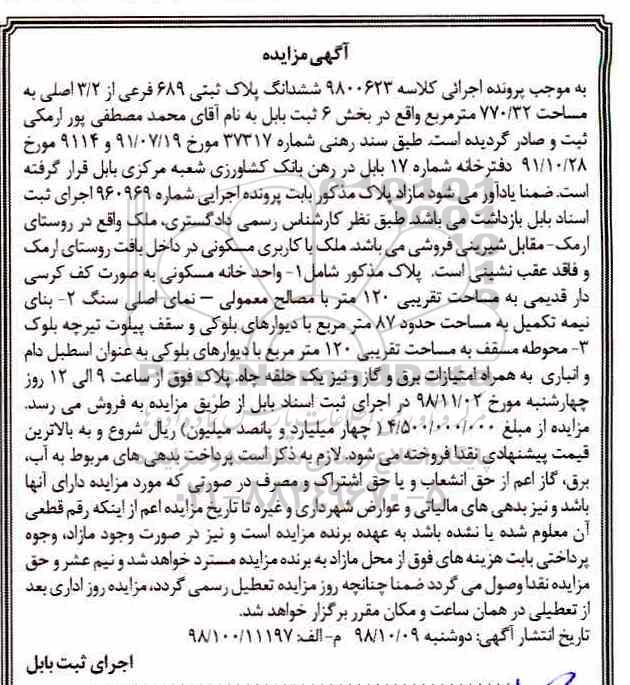 آگهی مزایده
به موجب پرونده اجرائی کلاسه ۹۸۰۰۶۲۳ ششدانگ پلاک ثبتی ۶۸۹ فرعی از ۳/۲ اصلی به
مساحت ۷۷۰/۳۲ مترمربع واقع در بخش ۶ ثبت بابل به نام آقای محمد مصطفی پور ارمکی
ثبت و صادر گردیده است. طبق سند رهنی شماره ۳۷۳۱۷ مورخ ۹۱/۰۷/۱۹ و ۹۱۱۴ مورخ
۹۱/۱۰/۲۸ دفترخانه شماره ۱۷ بابل در رهن بانک کشاورزی شعبه مرکزی بابل قرار گرفته
است. ضمنا یادآور می شود مازاد پلاک مذکور بابت پرونده اجرایی شماره ۹۶۰۹۶۹ اجرای ثبت
اسناد بابل بازداشت می باشد. طبق نظر کارشناس رسمی دادگستری، ملک واقع در روستای
ارمک- مقابل شیرینی فروشی می باشد. ملک با کاربری مسکونی در داخل بافت روستای ارمک
و فاقد عقب نشینی است. پلاک مذکور شامل ۱- واحد خانه مسکونی به صورت کف کرسی
دار قدیمی به مساحت تقریبی ۱۲۰ متر با مصالح معمولی – نمای اصلی سنگ ۲- بنای
نیمه تکمیل به مساحت حدود ۸۷ متر مربع با دیوارهای بلوکی و سقف پیلوت تیرچه بلوک
۳- محوطه مسقف به مساحت تقریبی ۱۲۰ متر مربع با دیوارهای بلوکی به عنوان اسطبل دام
و انباری به همراه امتیازات برق و گاز و نیز یک حلقه چاه. پلاک فوق از ساعت ۹ الی ۱۲ روز
چهارشنبه مورخ ۹۸/۱۱/۰۲ در اجرای ثبت اسناد بابل از طریق مزایده به فروش می رسد.
مزایده از مبلغ ۴/۵۰۰/۰۰۰/۰۰۰ ( چهار میلیارد و پانصد میلیون) ریال شروع و به بالاترین
قیمت پیشنهادی نقدا فروخته می شود. لازم به ذکر است پرداخت بدهی های مربوط به آب،
برق، گاز اعم از حق انشعاب و یا حق اشتراک و مصرف در صورتی که مورد مزایده دارای آنها
باشد و نیز بدهی های مالیاتی و عوارض شهرداری و غیره تا تاریخ مزایده اعم از اینکه رقم قطعی
آن معلوم شده یا نشده باشد به عهده برنده مزایده است و نیز در صورت وجود مازاد، وجوه
پرداختی بابت هزینه های فوق از محل مازاد به برنده مزایده مسترد خواهد شد و نیم عشر و حق
مزایده نقدا وصول می گردد ضمنا چنانچه روز مزایده تعطیل رسمی گردد، مزایده روز اداری بعد
از تعطیلی در همان ساعت و مکان مقرر برگزار خواهد شد.
تاریخ انتشار آگهی: دوشنبه ۹۸/۱۰/۰۹ م-الف: ۹۸/۱۰۰/۱۱۱۹۷
اجرای ثبت بابل